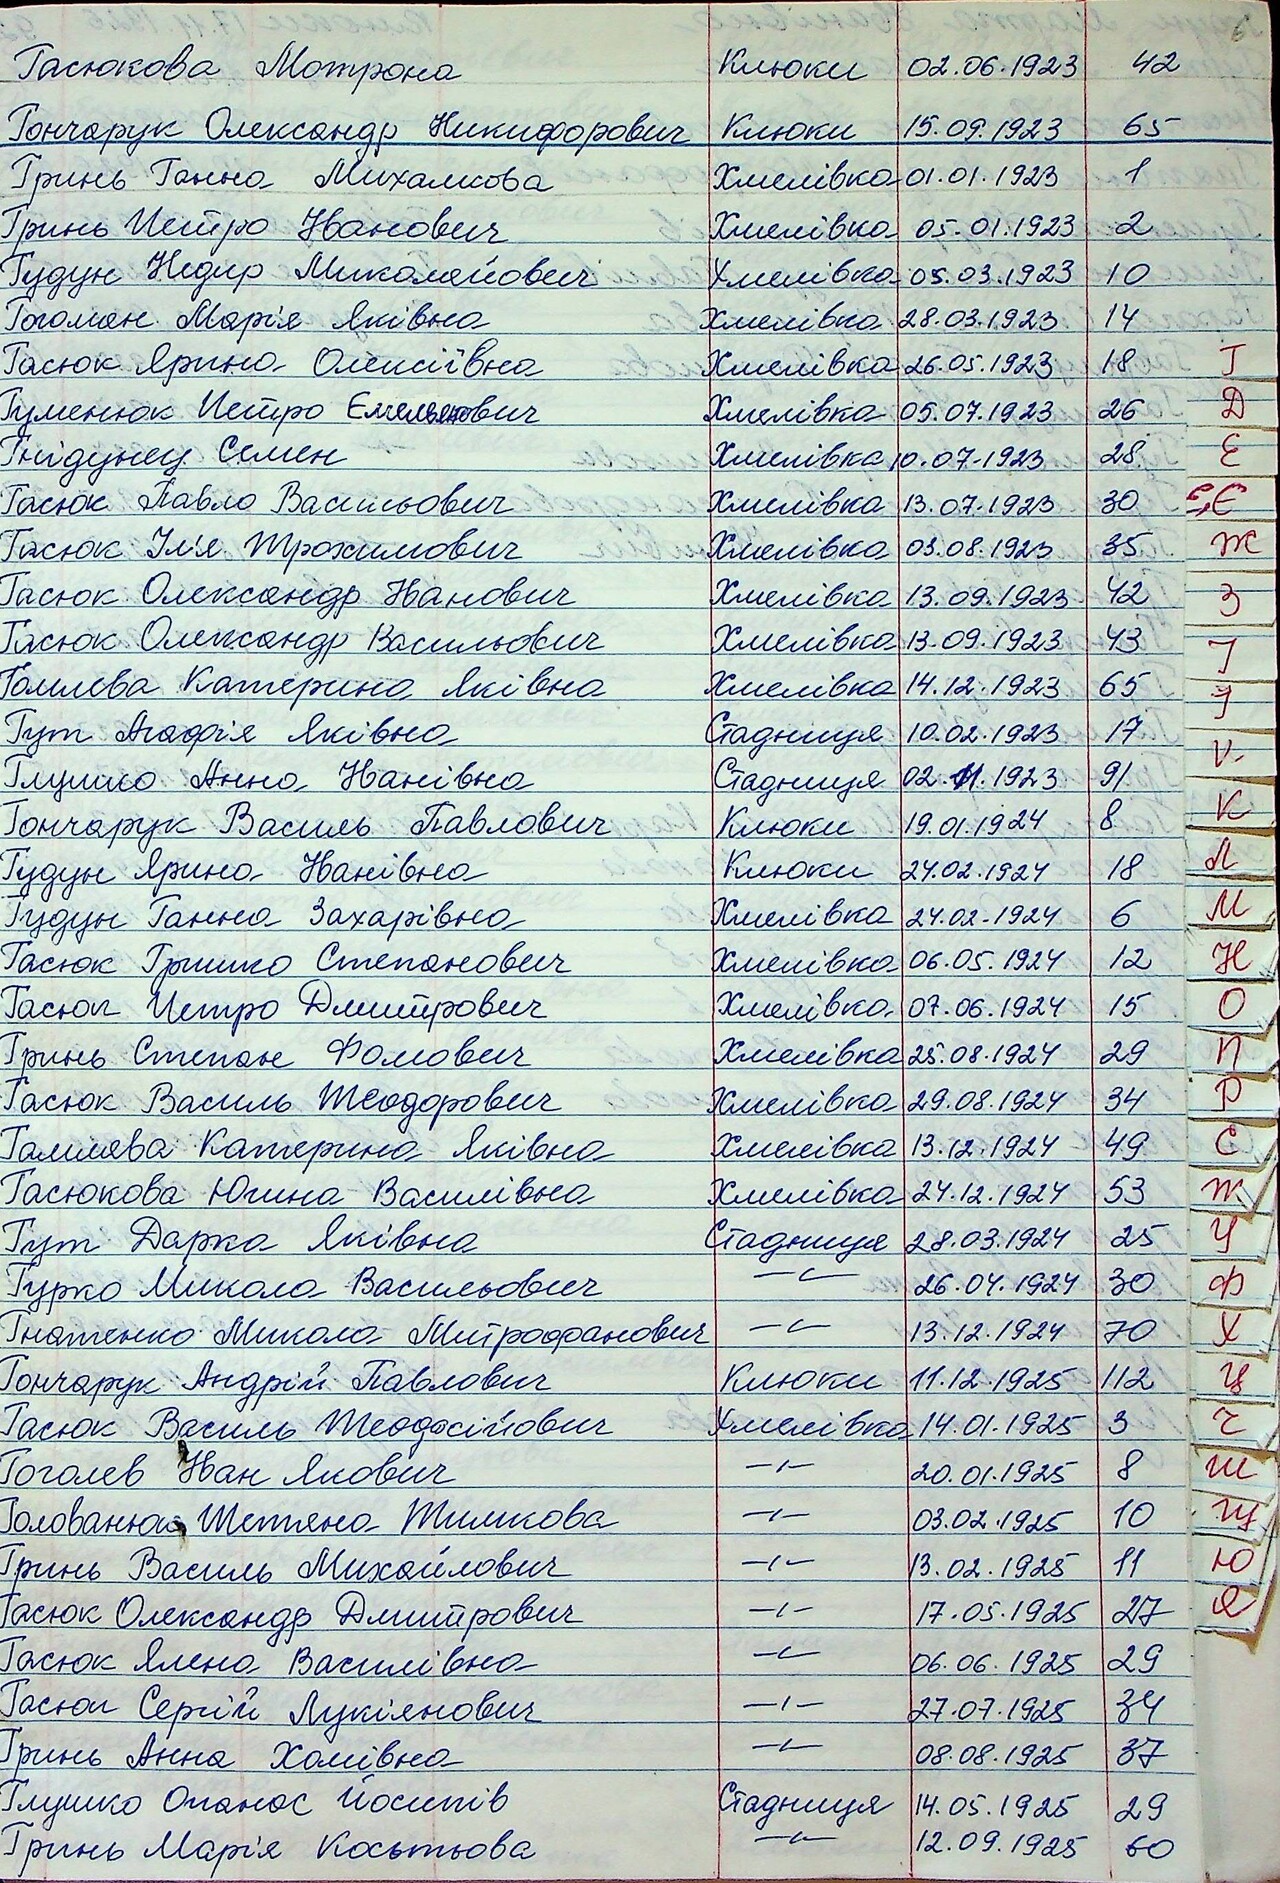 6
Гасюкова Мотрона Клюки 02.06.1923 42
Гончарук Олександр Никифорович Клюки 15.09.1923 65
Гринь Ганна Михалкова Хмелівка 01.01.1923 1
Гринь Петро Іванович Хмелівка 05.01.1923 2
Гудун Нидир Миколайович Хмелівка 05.03.1923 10
Гогоман Марія Яківна Хмелівка 28.03.1923 14
Гасюк Ярина Олексіївна Хмелівка 26.05.1923 18
Гуменюк Петро Емельянович Хмелівка 05.07.1923 26
Гнідунец Семен Хмелівка 10.07.1923 28
Гасюк Павло Васильович Хмелівка 13.07.1923 30
Гасюк Ілія Трохимович Хмелівка 03.08.1923 35
Гасюк Олександр Іванович Хмелівка 13.09.1923 42
Гасюк Олександр Васильович Хмелівка 13.09.1923 43
Катерина Яківна Хмелівка 14.12.1923 65
Гут Агафія Яківна Стадниця 10.02.1923 17
Глушко Анна Іванівна Стадниця 02.11.1923 91
Гончарук Василь Павлович Клюки 19.01.1924 8
Гудун Ярина Іванівна Клюки 24.02.1924 18
Гудун Ганна Захарівна Хмелівка 24.02.1924 6
Гасюк Гришко Степанович Хмелівка 06.05.1924 12
Гасюк Петро Дмитрович Хмелівка 07.06.1924 15
Гринь Степан Фомович Хмелівка 25.08.1924 29
Гасюк Василь Теодорович Хмелівка 29.08.1924 34
Катерина Яківна Хмелівка 13.12.1924 49
Гасюкова Югина Василівна Хмелівка 24.12.1924 53
Гут Дарка Яківна Стадниця 28.03.1924 25
Гурко Микола Васильович –"– 26.04.1924 30
Гнатенко Микола Митрофанович –"– 13.12.1924 70
Гончарук Андрій Павлович Клюки 11.12.1925 112
Гасюк Василь Теодосійович Хмелівка 14.01.1925 3
Гоголев Іван Якович –"– 20.01.1925 8
Голованюк Тетяна Тимкова –"– 03.02.1925 10
Гринь Василь Михайлович –"– 13.02.1925 11
Гасюк Олександр Дмитрович –"– 17.05.1925 27
Гасюк Ялена Василівна –"– 06.06.1925 29
Гасюк Сергій Лукіянович –"– 27.07.1925 34
Гринь Анна Хомівна –"– 08.08.1925 37
Глушко Опанас Йосипів Стадниця 14.05.1925 29
Гринь Марія Косьтьова –"– 12.09.1925 60
Г
Д
Е
Є
Ж
З
І
Ї
К
Л
М
Н
О
П
Р
С
Т
У
Ф
Х
Ц
Ч
Ш
Щ
Ю
Я